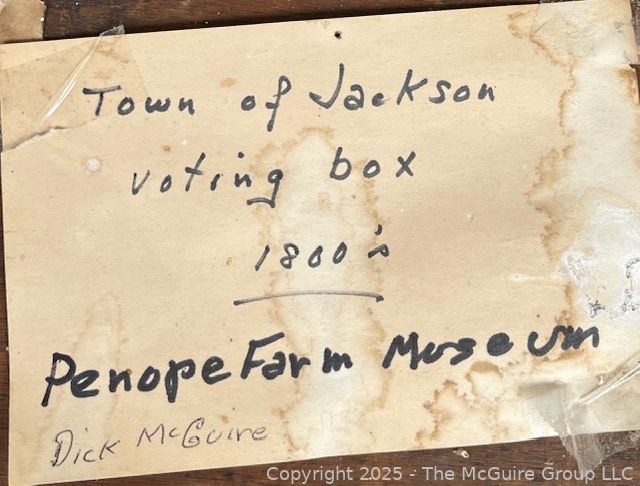 Town of Jackson
voting box
1800's
Penope Farm Museum
Dick McGuire
Copyright 2025 - The McGuire Group LLC